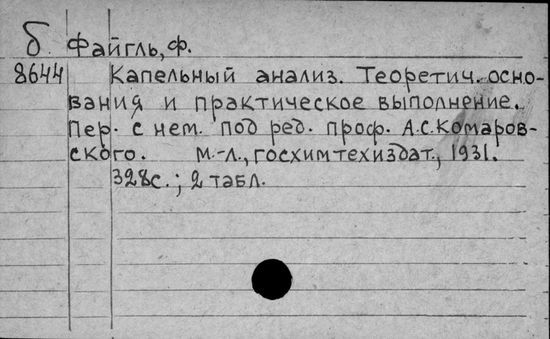 б Файгль, ф.
8644 Капельный анализ. Теоретич. осно-
вания и практическое выполнение.
Пер. с нем. под ред. проф. А.С. Комаров-
ского. м.-л., госхимтехиздат., 1931.
328с.; 2 табл.